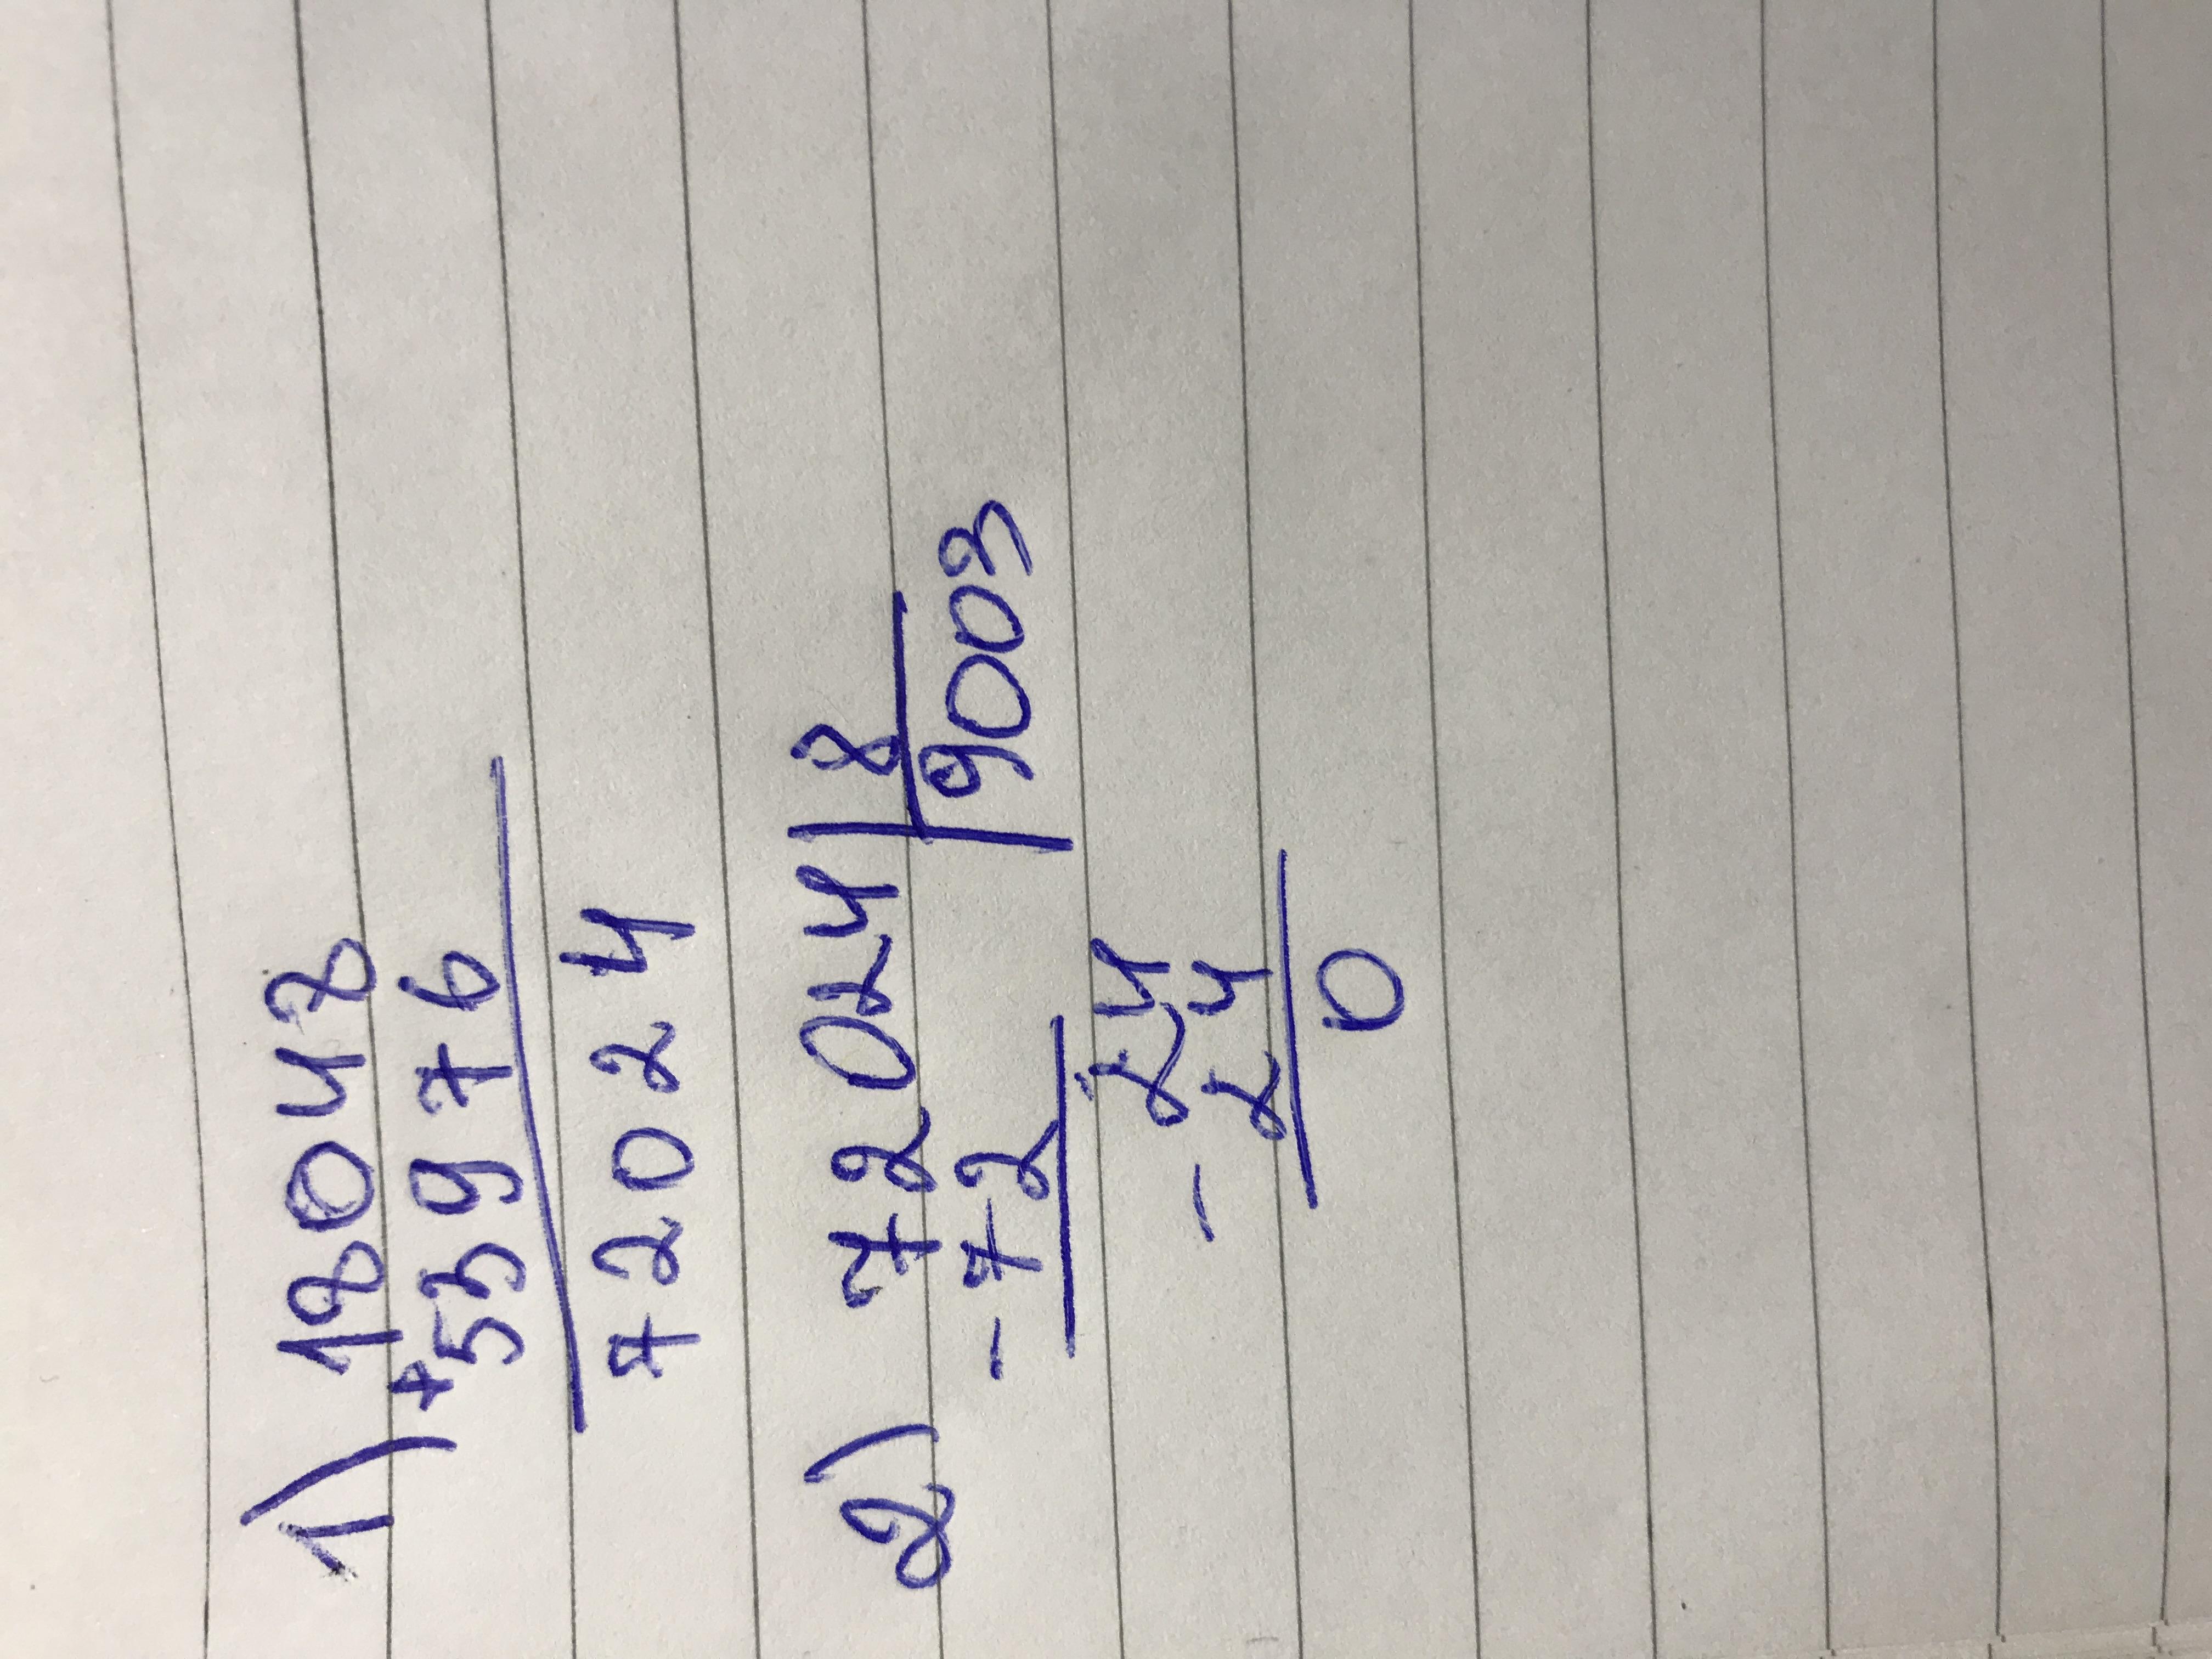 1) 18048
+53976
72024
2) 72024 | 8
-72 | 9003
24
- 24
0